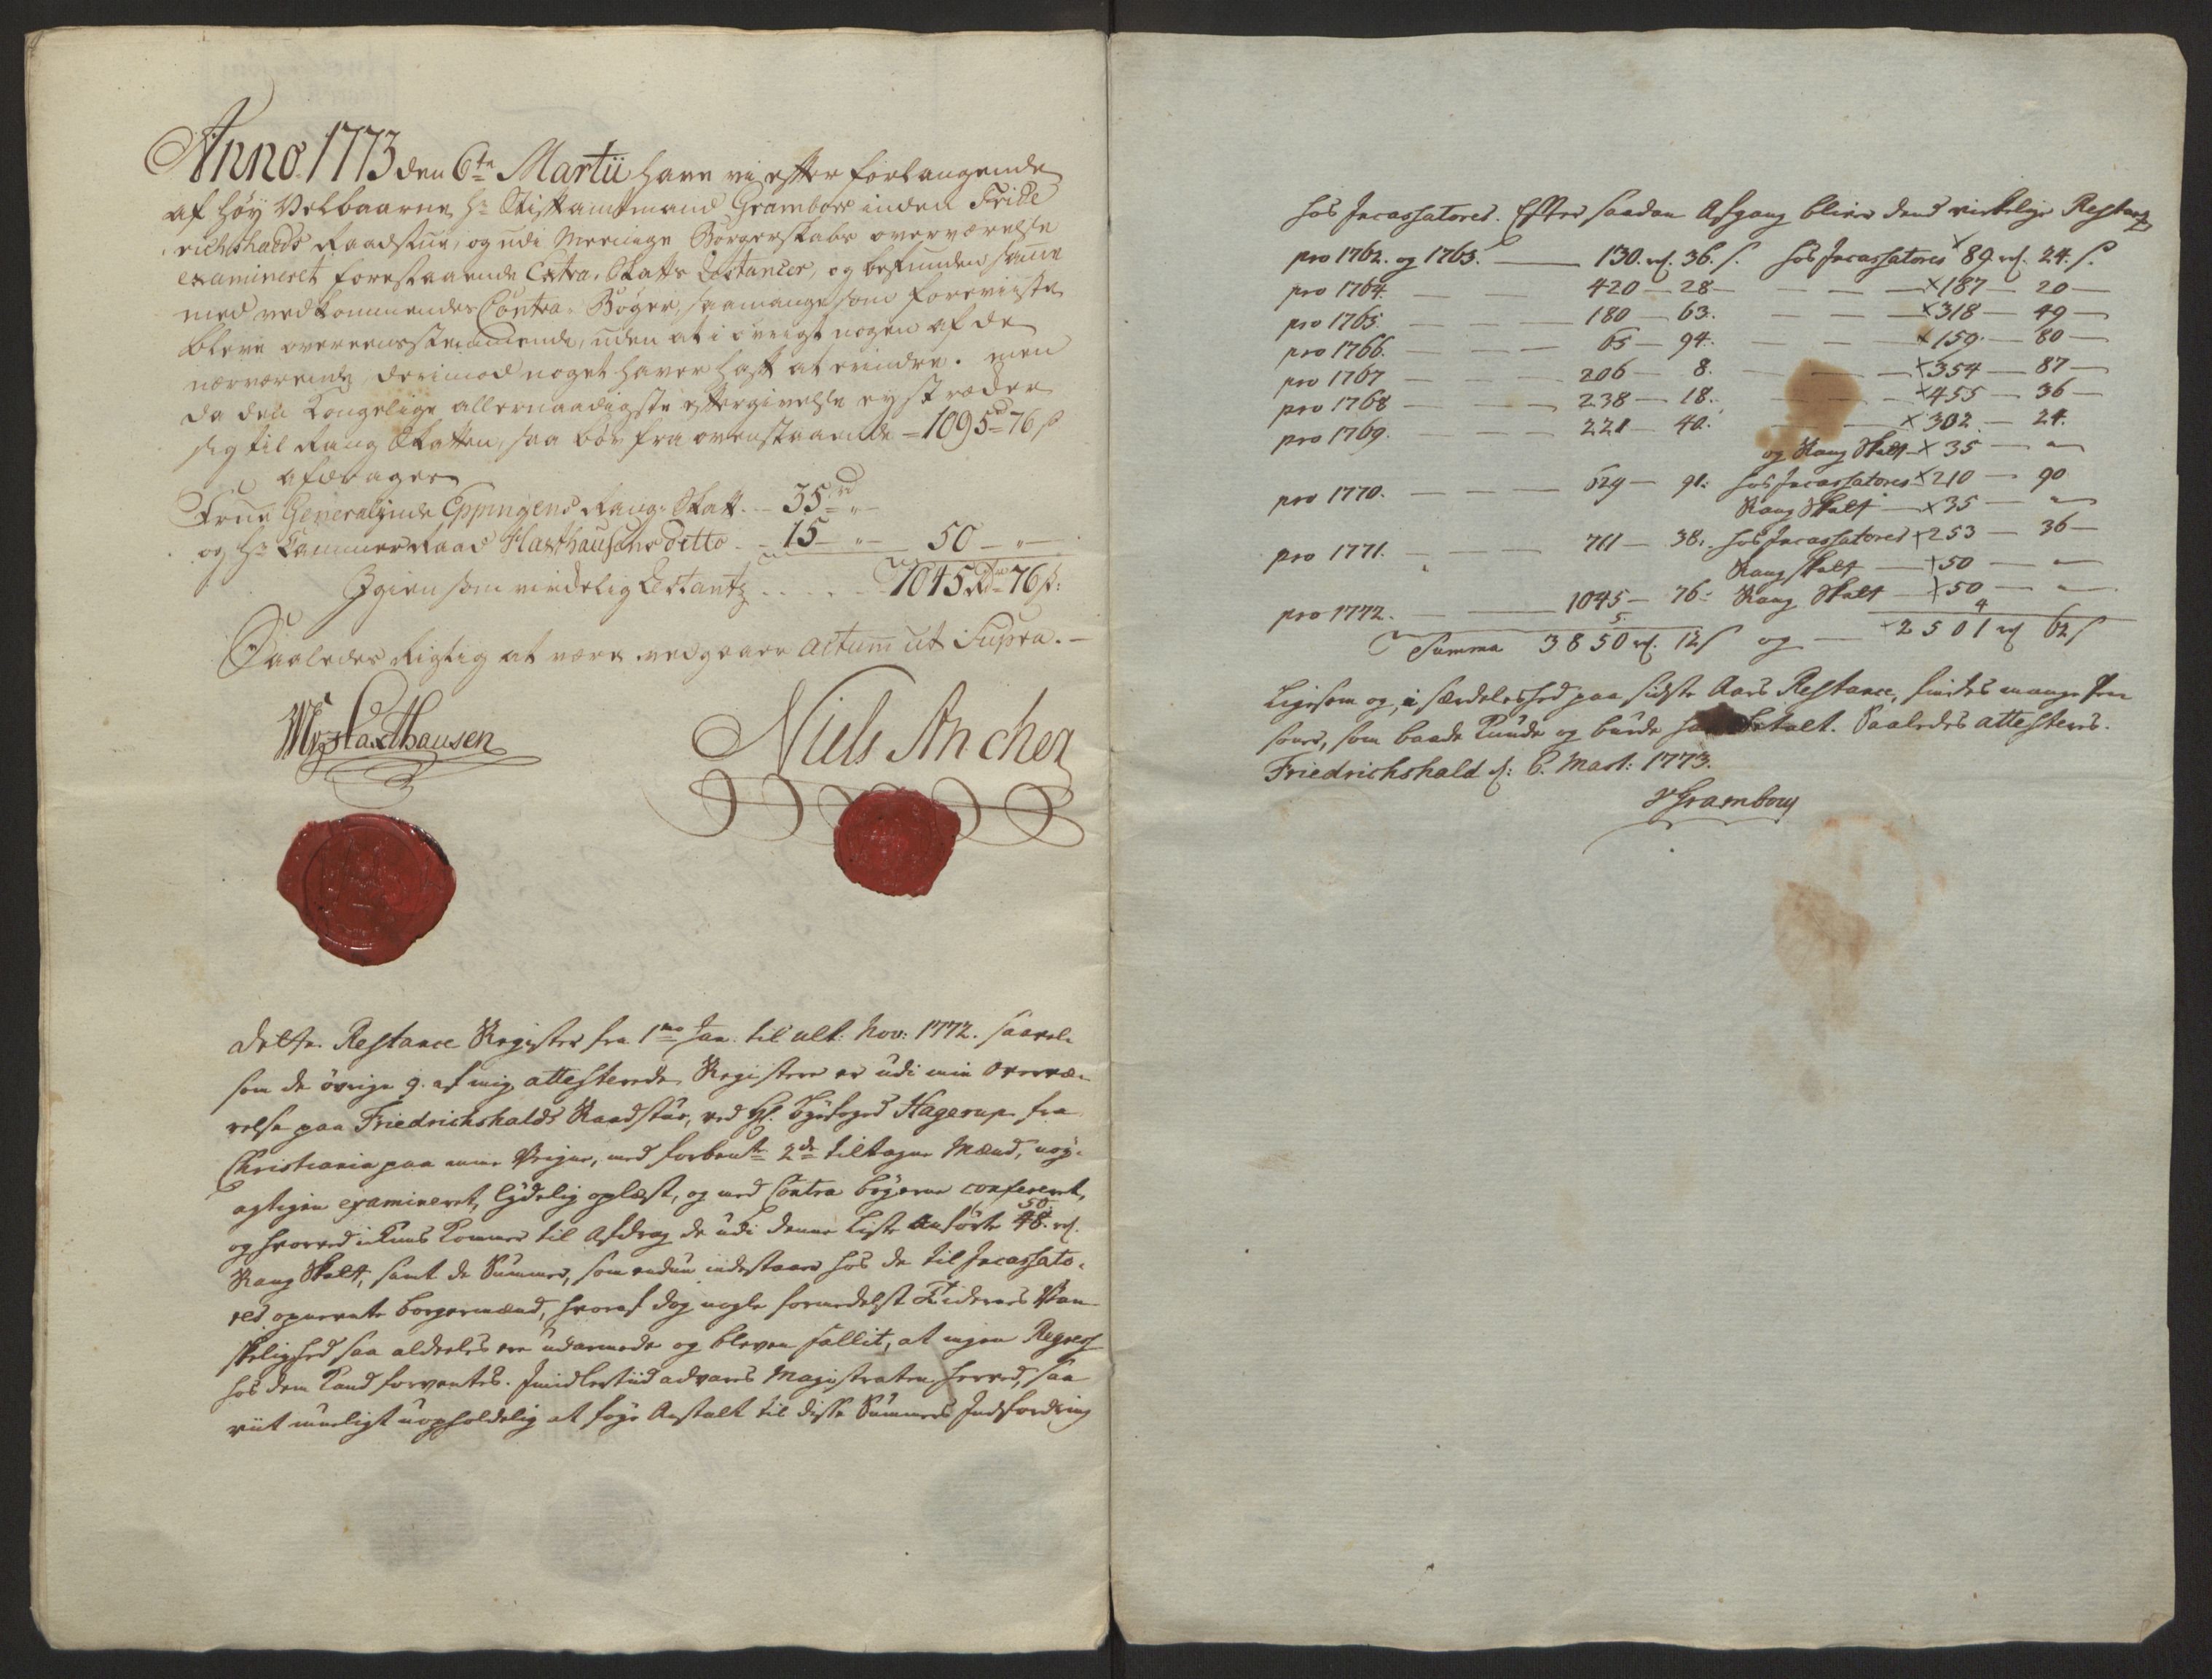 Anno 1773 den 6te Martii have vi efter forlangende
af Høy Velbaarne Hr Stiftamtmand Grambow inden Fride
richshalds Raadstue, og udi Meenige Borgerskabs overværelse
examineret forestaaende Extra-Skatts Restancer, og befunden samme
med vedkommendes Contra-Bøger, saamange som foreviiste
bleve overeensstemmende, uden at i øvrigt nogen af de
nærværende derimod noget haver haft at erindre. men
da den Kongelige allernaadigste eftergivelse ey strækker
sig til Rang Skatten, saa bør fra ovenstaaende = 1095rd 76 s
afdrages
Frue Generalinde Eppingens Rang-Skatt - 35rd "
og Hr Kammer Raad Haxthausens ditto - 15 - " - 50 - "
Igien som virkelig Restantz . . . . . 1045 Rdr 76 s:
Saaledes Rigtig at være vedgaaer actum ut Supra. -
Haxthausen
Niels Ancher
Dette Restance Register fra 1mo Jan. til ult: Nov: 1772. saavel
som de øvrige 9. af mig attesterede Registere er udi min Overvæ-
relse paa Friedrichshalds Raadstue, ved Hl. Byefoged Hagerup fra
Christiania paa mine Vegne, med forbente 2de tiltagne Mænd, nøy-
agtigen examineret, lydelig oplæst, og med Contra bøgerne confereret,
og hvorved ikkuns kommer til Afdrag de udi denne Liste anførte 50. 48. rd.
Rang Skatt, samt de Summer, som endnu indestaaer hos de til Incassato-
res opnevnte borgermænd, hvoraf dog nogle formedelst Tidernes Van-
skelighed saa aldeeles ere udarmede og bleven fallit, at ingen Regress
hos dem kand forventes. Imidlertiid advares Magistraten herved, saa
viit mueligt uopholdelig at føye Anstalt til disse Summers Indfordring
hos Incassatores. Efter saadan Afgang bliver dend virkelige Restantz
pro 1762. og 1763. — 130. rd. 36. s. hos Incassatores × 89 rd. 24. s.
pro 1764. — — 420 — 28 — — — × 187 — 20 —
pro 1765. — — — 180 — 63. — — × 318 — 49 —
pro 1766. — — — 65 — 94. — — × 159 — 80 —
pro 1767 — — — 206 — 8. — — × 354 — 87 —
pro 1768 — — — 238 — 18. — — × 455 — 36 —
pro 1769. — — — 221 — 40. — × 302 — 24.
og Rang Skatt × 35 — "
pro 1770. — — — 629 — 91. hos Incassatores × 210 — 90
Rang Skatt — × 35 — "
pro 1771. — — — 711 — 38. hos Incassatores × 253 — 36 —
Rang Skatt — × 50 — "
pro 1772. — — 1045 — 76. Rang Skatt — × 50 — "
Summa 3850 rd. 12 s og — 2501 rd 62 s
Ligesom og, i særdeleshed paa sidste Aars Restance, findes mange Per
soner, som baade kunde og burde have betalt. Saaledes attesteres.
Friedrichshald d: 6. Mart: 1773.
v Grambow